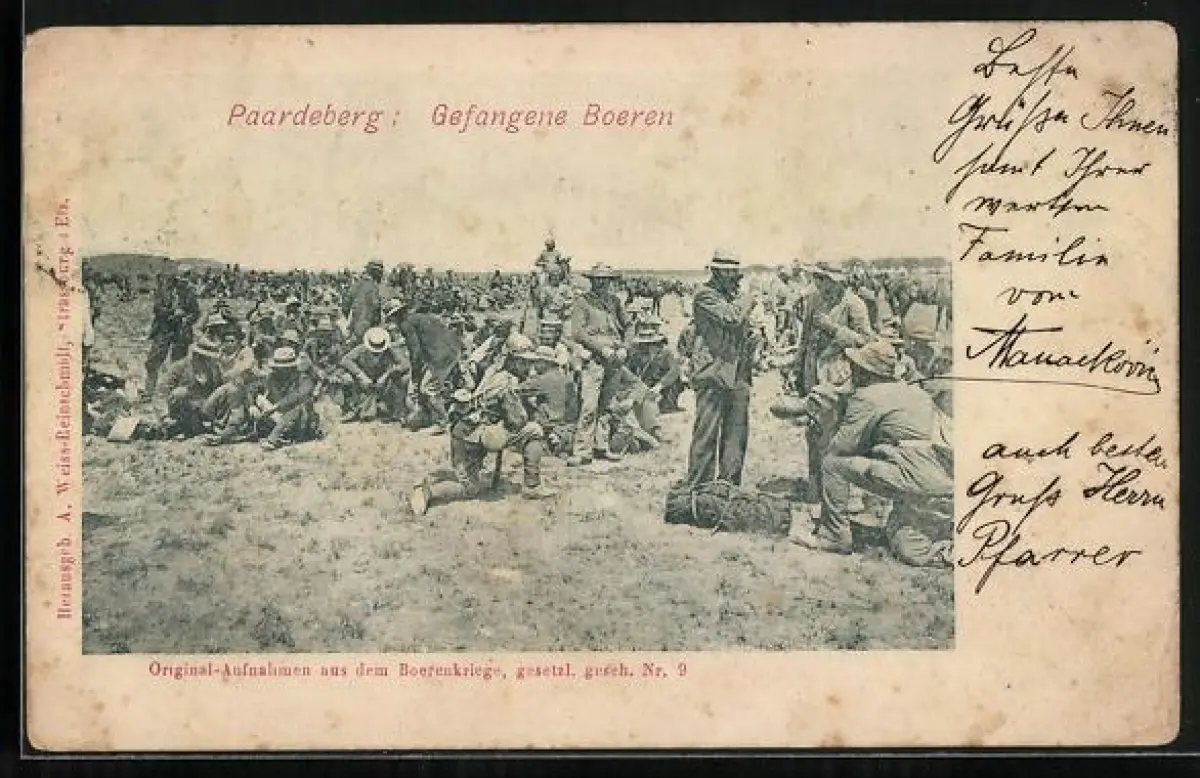 Paardeberg: Gefangene Boeren
Beste
Grüße Ihnen
samt Ihrer
werten
Familie
von
auch besten
Gruß Herrn
Pfarrer
Herausgeb. A. Weiss-Reinschmidt, Strassburg i Els.
Original-Aufnahmen aus dem Boerenkriege, gesetzl. gesch. Nr. 9